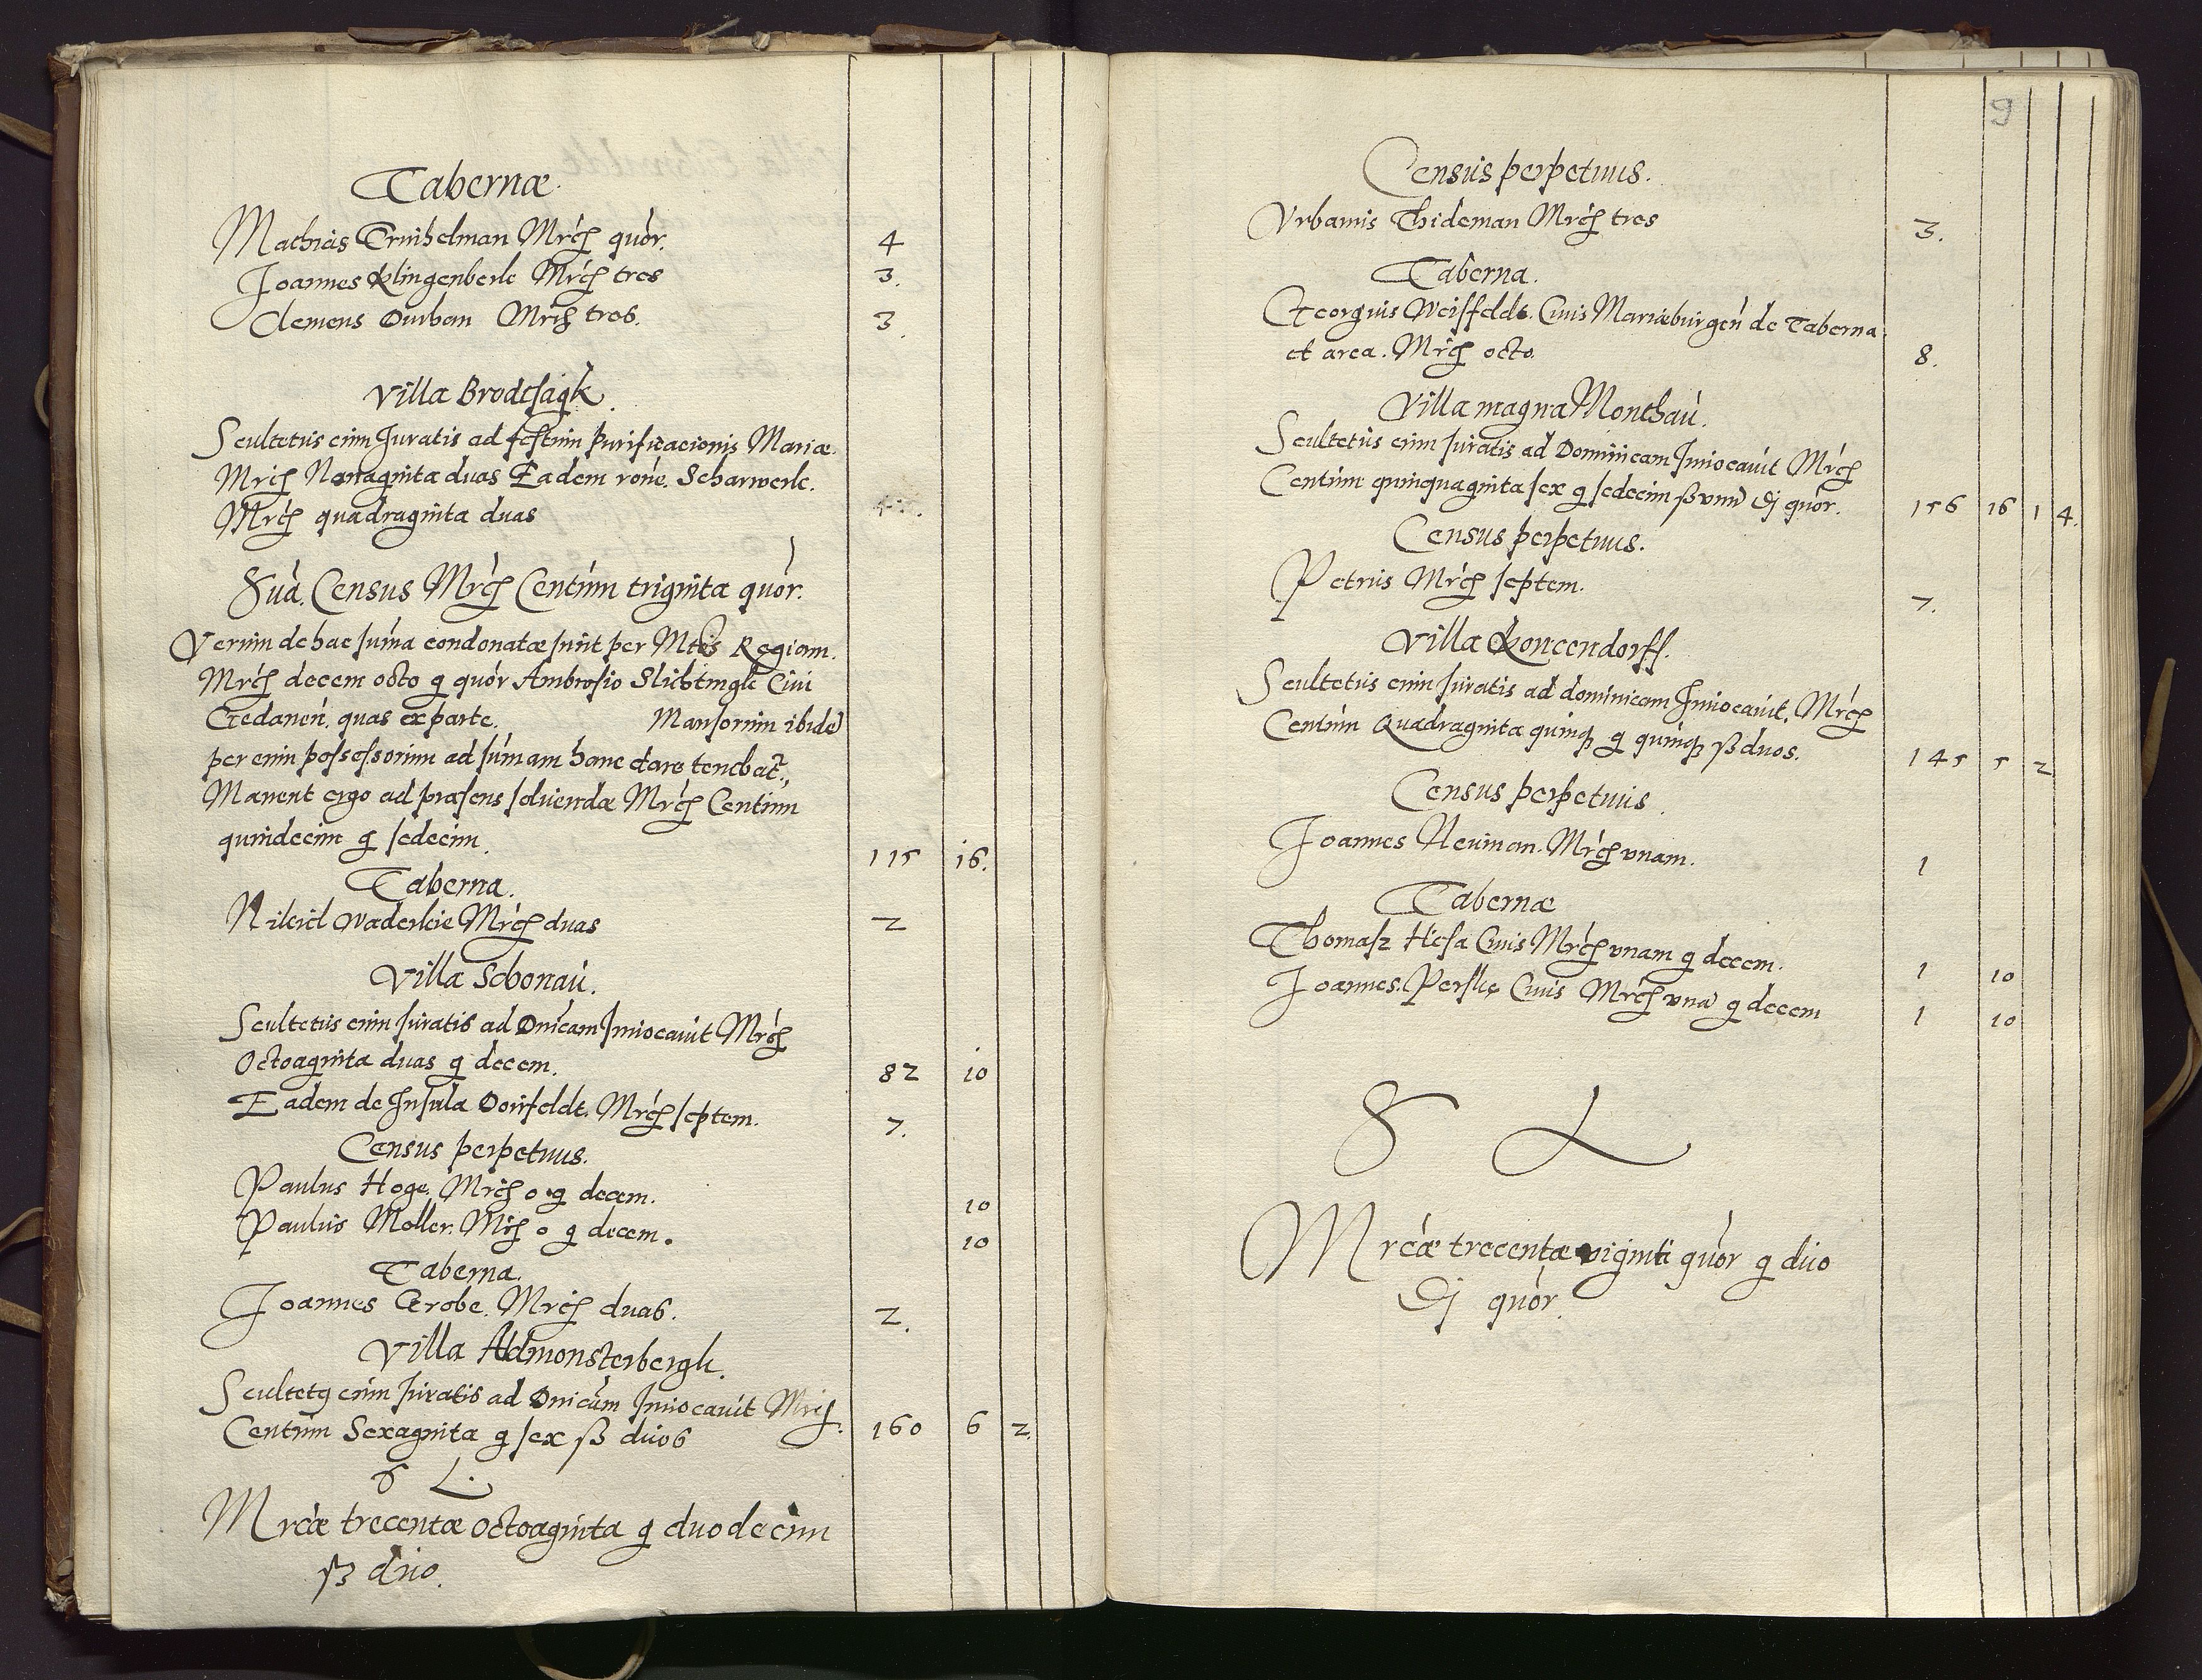 Tabernæ.
Mathias Mrcs quor. 4
Joannes Klingenberk Mrcs tres 3.
Clemens Durban Mrcs tres. 3.
Villa Brodtsagk.
Scultetus cum Juratis ad festum purificacionis Mariæ.
Mrcs Nonaginta duas Eadem rone. Scharwerk.
Mrcs quadraginta duas
Sua. Census Mrcs Centum triginta quor.
Verum de hac suma condonatæ sunt per Mtis Regiam.
Mrcs decem octo g quor Ambrosio Slichtingk Civi
Gedanen. quas ex parte. Mansorum ibide
per eum possessorum ad sumam hanc dare tenebat.,
Manent ergo ad præsens solvendæ Mrcs Centum
quindecim g sedecim. 115 16.
Taberna.
Nikiel Waderkie Mrcs duas 2
Villa Schonau.
Scultetus cum Juratis ad Dnicam Invocavit Mrcs
Octoaginta duas g decem. 82 10
Eadem de Insula Donfeldt. Mrcs septem. 7.
Census perpetuus.
Paulus Hoge. Mrcs o g decem. 10
Paulus Moller. Mrcs o g decem. 10
Taberna.
Joannes Grobe. Mrcs duas. 2.
Villa Aldmonsterbergk.
Scultetg cum Juratis ad Dnicam Invocavit Mrcs.
Centum Sexaginta g sex ß duos 160 6 2.
S L.
Mrcæ trecentæ octoaginta g duodecim
ß duo.
9
Census perpetuus.
Urbanus Thideman Mrcs tres 3.
Taberna.
Georgius Weisfeldt. Civis Mariæburgen de Taberna.
et area. Mrcs octo. 8.
Villa magna Monthau.
Scultetus cum Juratis ad Dominicam Invocavit Mrcs
Centum quinquaginta sex g sedecim ß vnu dj quor. 156 16 1 4.
Census perpetuus.
Petrus Mrcs septem. 7.
Villa Koncendorff.
Scultetus cum Juratis ad dominicam Invocavit. Mrcs
Centum Quadraginta quinq g quinq ß duos. 145 5 2
Census perpetuus.
Joannes Neuman. Mrcs vnam. 1
Tabernæ
Thomasz Hesa Civis Mrcs vnam g decem. 1 10
Joannes Perske Civis Mrcs vna g decem 1 10
S L
Mrcæ trecentæ viginti quor g duo
dj quor.